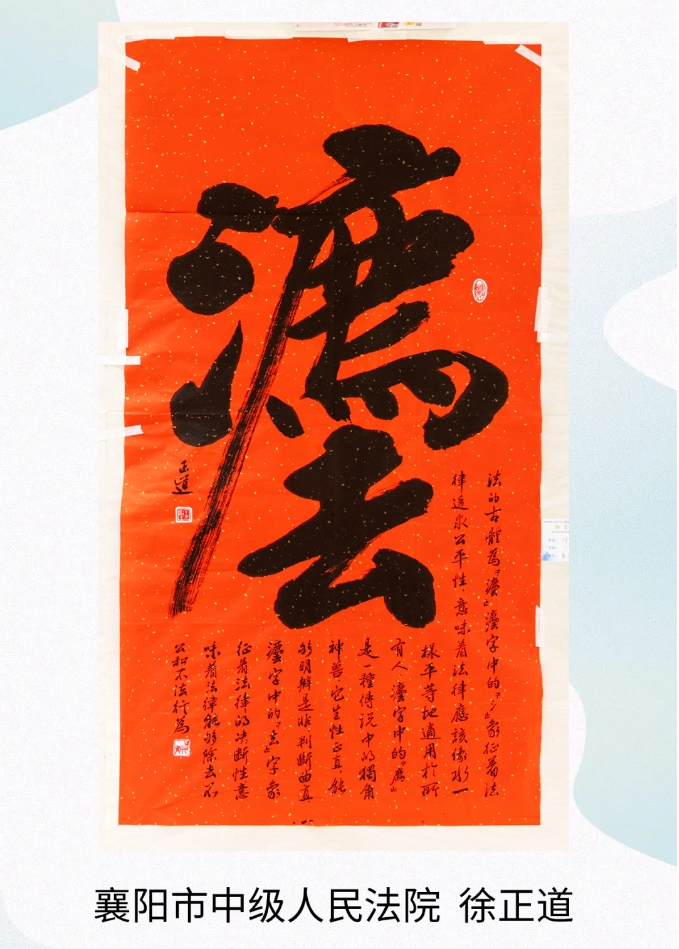 灋
法的古體為“灋”灋字中的“氵”象征着法
律追求公平性,意味着法律應該像水一
樣平等地適用於所
有人 灋字中的“廌”
是一種傳说中的獨角
神兽,它生性正直,能
够明辨是非判斷曲直
灋字中的“去”字象
征着法律的决斷性意
味着法律能够除去不
公和不法行為
正道
襄阳市中级人民法院 徐正道